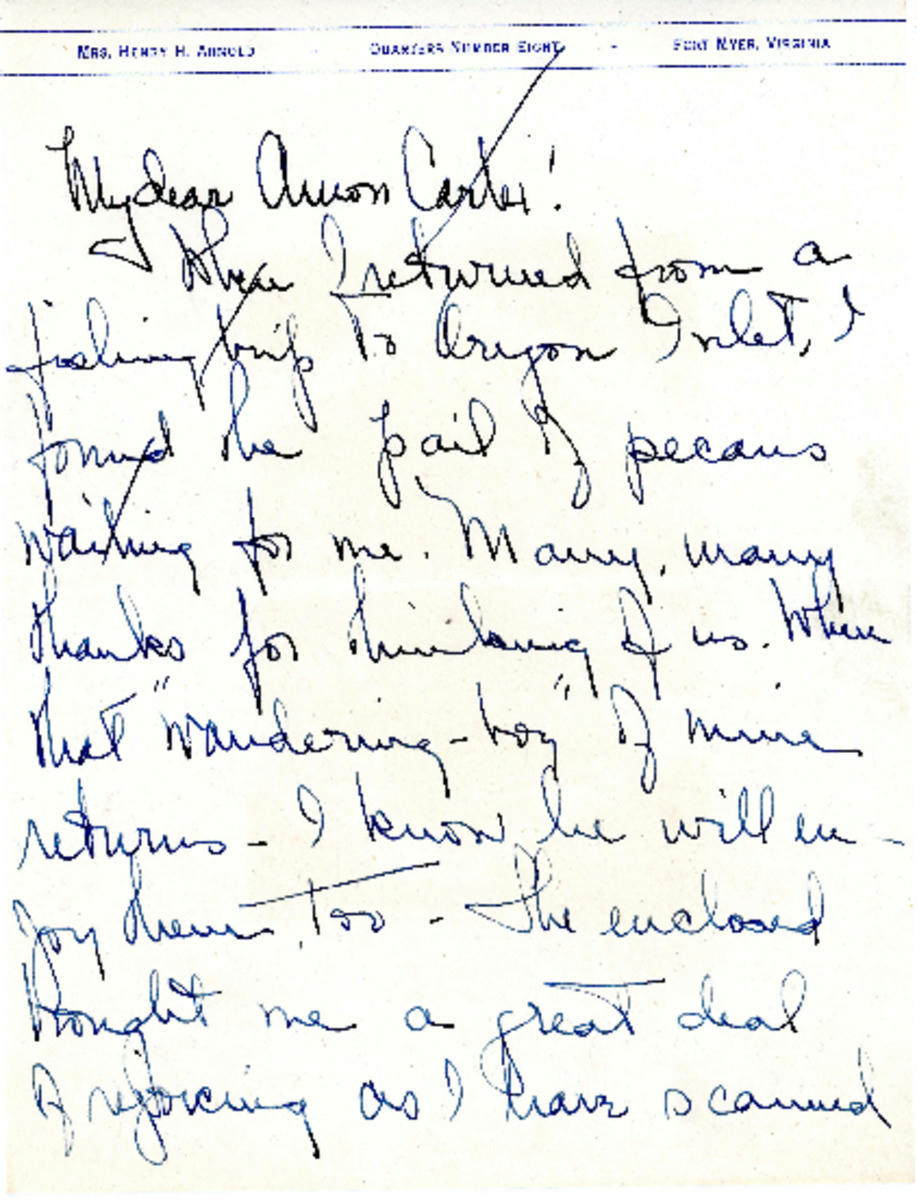 MRS. HENRY H. ARNOLD - QUARTERS NUMBER EIGHT - FORT MYER, VIRGINIA
My dear Amon Carter!
When I returned from a
fishing trip to Oregon Inlet, I
found the pail of pecans
waiting for me. Many, many
thanks for thinking of us. When
that "wandering-boy" of mine
returns - I know he will en-
joy them, too - The enclosed
brought me a great deal
of rejoicing as I have scanned